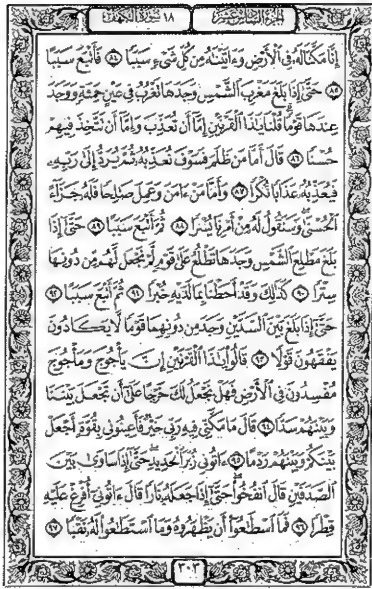 الجزء السادس عشر
١٨ سورة الكهف
إِنَّا مَكَّنَّا لَهُ فِي الْأَرْضِ وَءَاتَيْنَٰهُ مِن كُلِّ شَىْءٍ سَبَبًا ٨٤ فَأَتْبَعَ سَبَبًا
٨٥ حَتَّىٰٓ إِذَا بَلَغَ مَغْرِبَ الشَّمْسِ وَجَدَهَا تَغْرُبُ فِي عَيْنٍ حَمِئَةٍ وَوَجَدَ
عِندَهَا قَوْمًا قُلْنَا يَٰذَا الْقَرْنَيْنِ إِمَّآ أَن تُعَذِّبَ وَإِمَّآ أَن تَتَّخِذَ فِيهِمْ
حُسْنًا ٨٦ قَالَ أَمَّا مَن ظَلَمَ فَسَوْفَ نُعَذِّبُهُ ثُمَّ يُرَدُّ إِلَىٰ رَبِّهِ
فَيُعَذِّبُهُ عَذَابًا نُّكْرًا ٨٧ وَأَمَّا مَنْ ءَامَنَ وَعَمِلَ صَٰلِحًا فَلَهُ جَزَآءً
الْحُسْنَىٰ وَسَنَقُولُ لَهُ مِنْ أَمْرِنَا يُسْرًا ٨٨ ثُمَّ أَتْبَعَ سَبَبًا ٨٩ حَتَّىٰٓ إِذَا
بَلَغَ مَطْلِعَ الشَّمْسِ وَجَدَهَا تَطْلُعُ عَلَىٰ قَوْمٍ لَّمْ نَجْعَل لَّهُم مِّن دُونِهَا
سِتْرًا ٩٠ كَذَٰلِكَ وَقَدْ أَحَطْنَا بِمَا لَدَيْهِ خُبْرًا ٩١ ثُمَّ أَتْبَعَ سَبَبًا ٩٢
حَتَّىٰٓ إِذَا بَلَغَ بَيْنَ السَّدَّيْنِ وَجَدَ مِن دُونِهِمَا قَوْمًا لَّا يَكَادُونَ
يَفْقَهُونَ قَوْلًا ٩٣ قَالُوا يَٰذَا الْقَرْنَيْنِ إِنَّ يَأْجُوجَ وَمَأْجُوجَ
مُفْسِدُونَ فِي الْأَرْضِ فَهَلْ نَجْعَلُ لَكَ خَرْجًا عَلَىٰٓ أَن تَجْعَلَ بَيْنَنَا
وَبَيْنَهُمْ سَدًّا ٩٤ قَالَ مَا مَكَّنِّي فِيهِ رَبِّي خَيْرٌ فَأَعِينُونِي بِقُوَّةٍ أَجْعَلْ
بَيْنَكُمْ وَبَيْنَهُمْ رَدْمًا ٩٥ ءَاتُونِي زُبَرَ الْحَدِيدِ حَتَّىٰٓ إِذَا سَاوَىٰ بَيْنَ
الصَّدَفَيْنِ قَالَ انفُخُوا حَتَّىٰٓ إِذَا جَعَلَهُ نَارًا قَالَ ءَاتُونِيٓ أُفْرِغْ عَلَيْهِ
قِطْرًا ٩٦ فَمَا اسْطَٰعُوٓا أَن يَظْهَرُوهُ وَمَا اسْتَطَٰعُوا لَهُ نَقْبًا ٩٧
٣٠٣